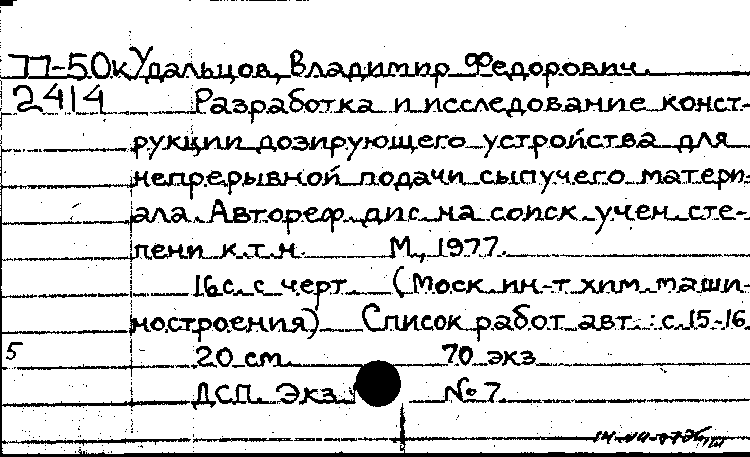 П-50к Удальцов, Владимир Федорович.
2414 Разработка и исследование конст-
рукции дозирующего устройства для
непрерывной подачи сыпучего матери-
ала. Автореф. дис. на соиск. учен. сте-
пени к.т.н. М., 1977.
16 с. с черт. (Моск. ин-т хим. маши-
ностроения) Список работ авт.: с. 15-16.
5 20 см. 70 экз
ДСП. Экз. № 7.